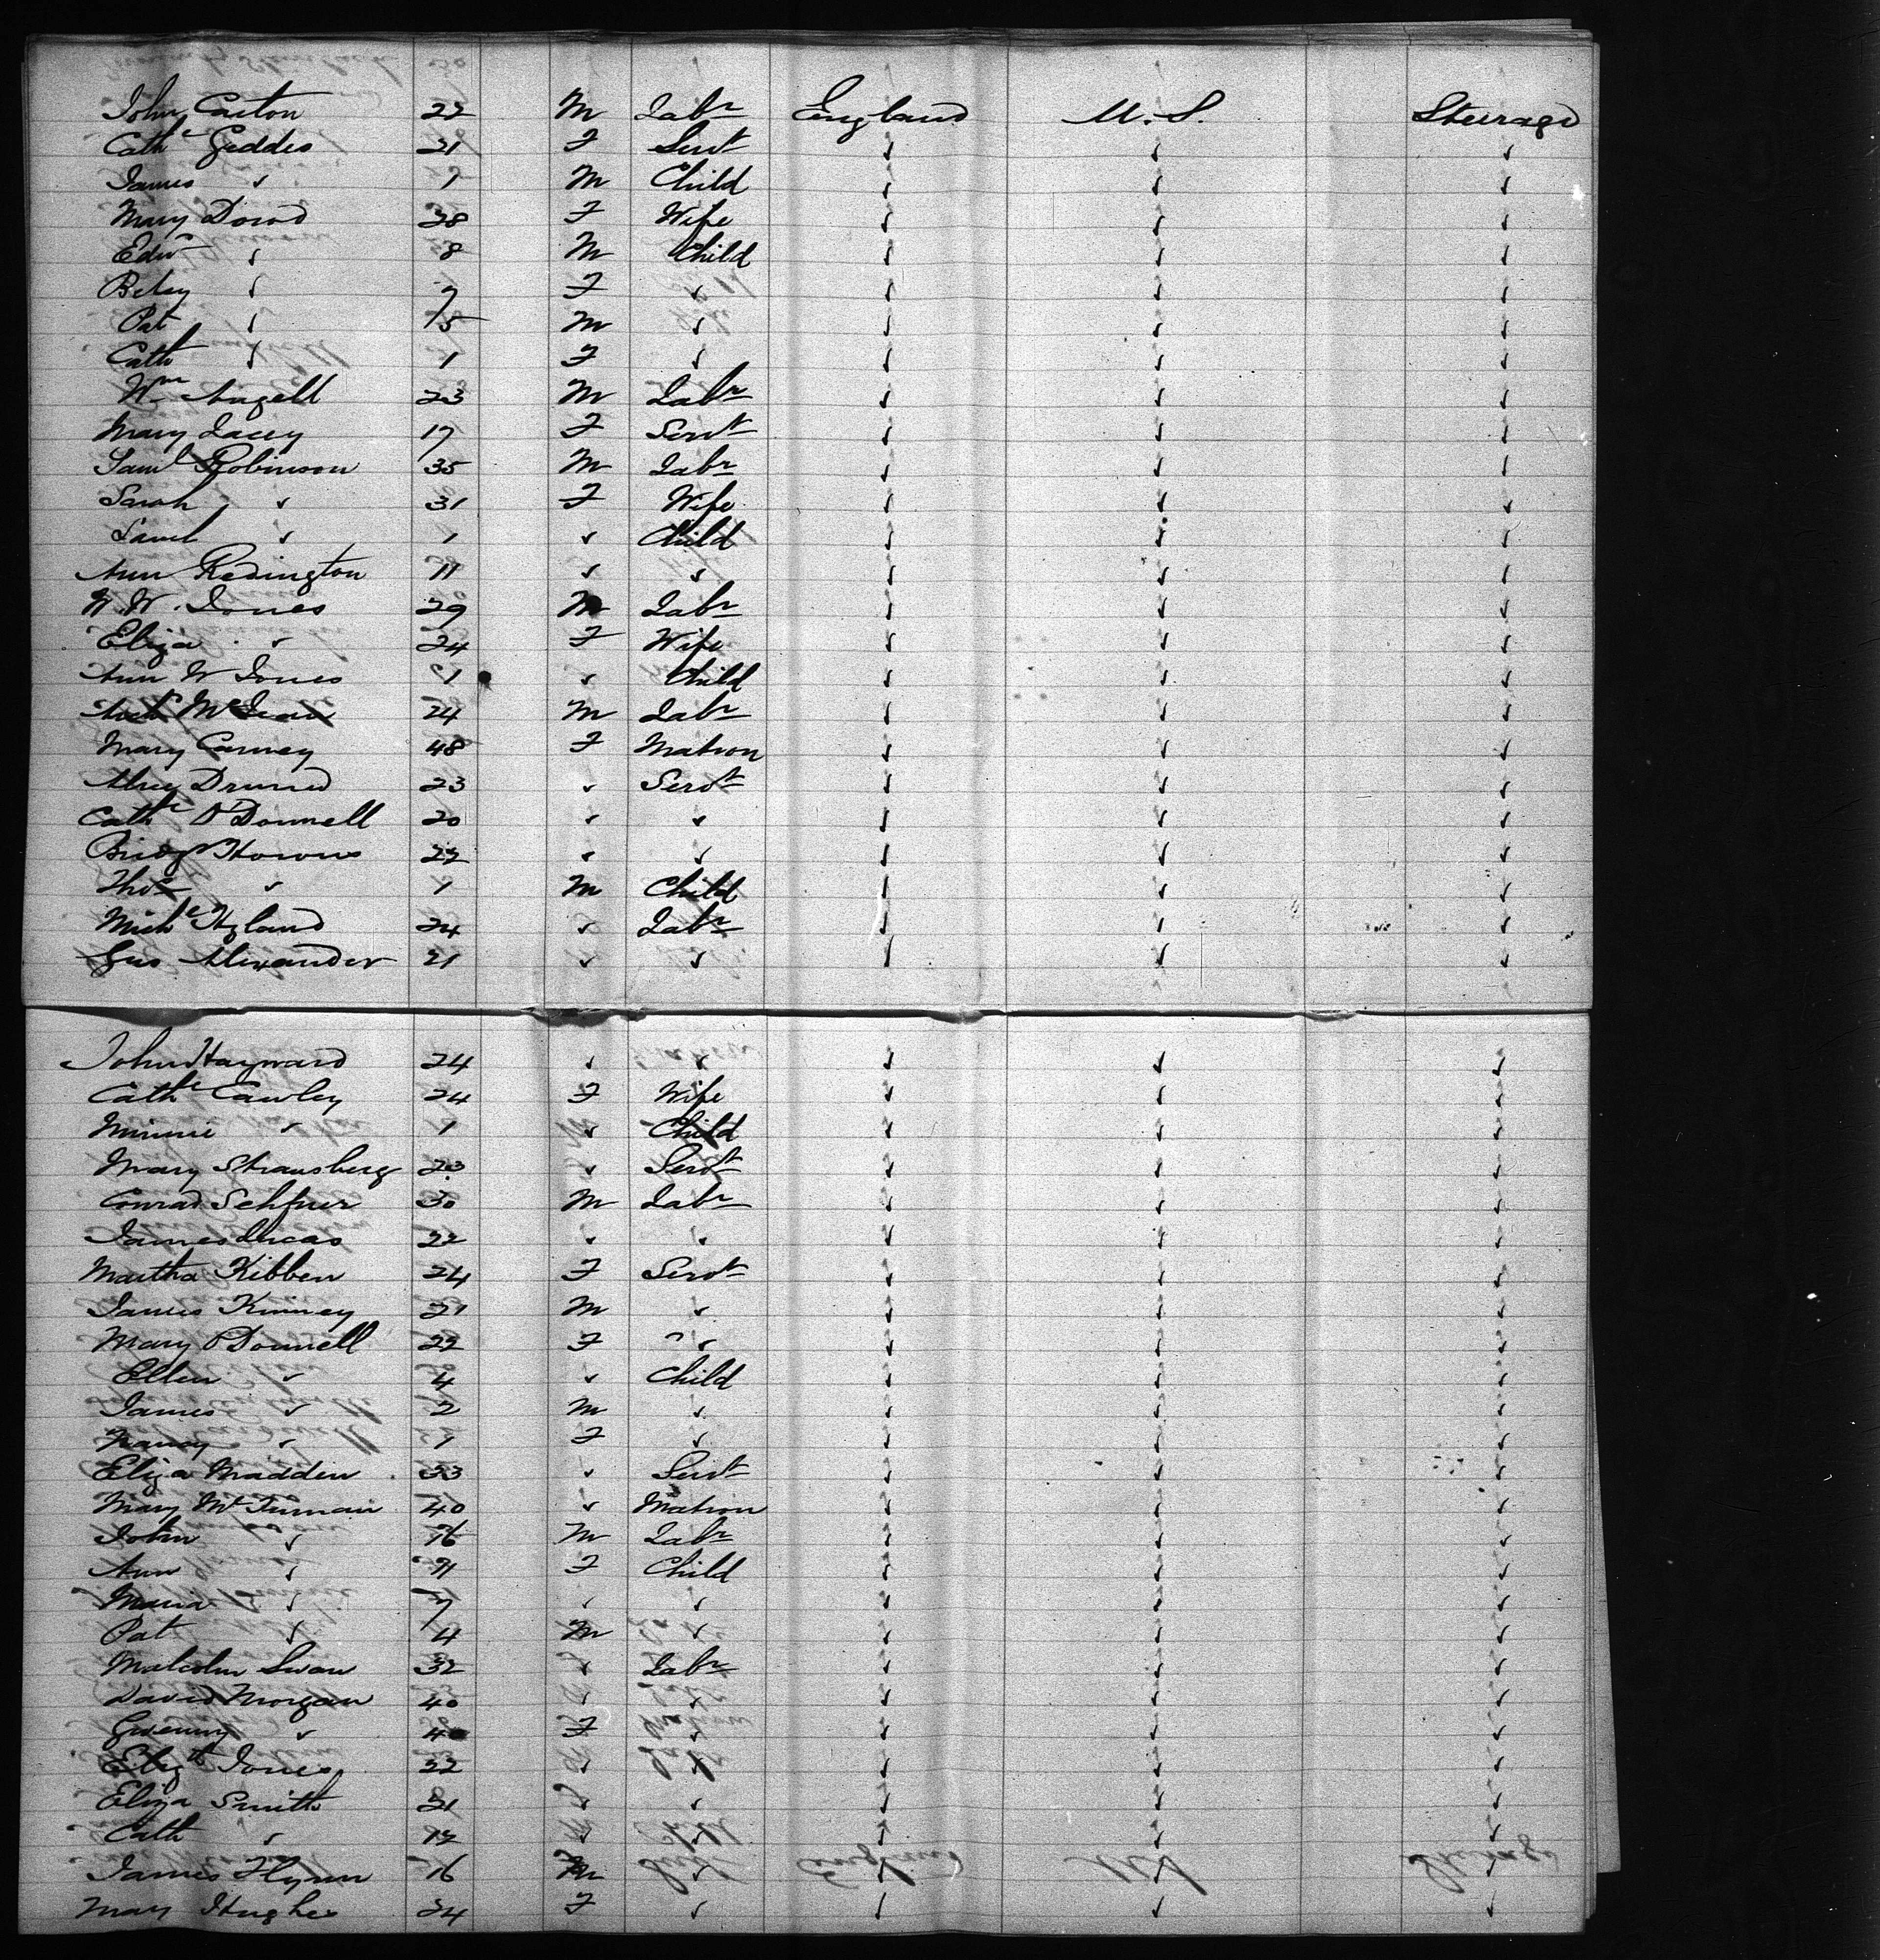 John Carton 22 M Labr England U.S. Steerage
Cathe Geddes 21 F Servt ✓ ✓ ✓
James ✓ 1 M Child ✓ ✓ ✓
Mary Dowd 28 F Wife ✓ ✓ ✓
Edwd ✓ 8 M Child ✓ ✓ ✓
Betsy ✓ 7 F ✓ ✓ ✓ ✓
Pat ✓ 5 M ✓ ✓ ✓ ✓
Cath ✓ 1 F ✓ ✓ ✓ ✓
Wm Angell 23 M Labr ✓ ✓ ✓
Mary Lacey 17 F Servt ✓ ✓ ✓
Saml Robinson 35 M Labr ✓ ✓ ✓
Sarah ✓ 31 F Wife ✓ ✓ ✓
Saml ✓ 1 ✓ Child ✓ ✓ ✓
Ann Redington 11 ✓ ✓ ✓ ✓ ✓
W. W. Jones 29 M Labr ✓ ✓ ✓
Eliza ✓ 24 F Wife ✓ ✓ ✓
Ann W Jones 1 ✓ Child ✓ ✓ ✓
Archd McLean 24 M Labr ✓ ✓ ✓
Mary Carney 48 F Matron ✓ ✓ ✓
23 ✓ Servt ✓ ✓ ✓
Cathe O'Donnell 20 ✓ ✓ ✓ ✓ ✓
Bridgt 22 ✓ ✓ ✓ ✓ ✓
Thos ✓ 1 M Child ✓ ✓ ✓
Michl Hyland 24 ✓ Labr ✓ ✓ ✓
Gus Alexander 21 ✓ ✓ ✓ ✓ ✓
John Hayward 24 ✓ ✓ ✓ ✓ ✓
Cathe Cawley 24 F Wife ✓ ✓ ✓
Minnie ✓ 1 ✓ Child ✓ ✓ ✓
Mary Strausberg 23 ✓ Servt ✓ ✓ ✓
Conrad 30 M Labr ✓ ✓ ✓
James Lucas 22 ✓ ✓ ✓ ✓ ✓
Martha Kibben 24 F Servt ✓ ✓ ✓
James Kinney 21 M ✓ ✓ ✓ ✓
Mary O'Donnell 22 F ✓ ✓ ✓ ✓
Ellen ✓ 4 ✓ Child ✓ ✓ ✓
James ✓ 2 M ✓ ✓ ✓ ✓
Nancy ✓ 1 F ✓ ✓ ✓ ✓
Eliza Madden 33 ✓ Servt ✓ ✓ ✓
Mary 40 ✓ Matron ✓ ✓ ✓
John ✓ 16 M Labr ✓ ✓ ✓
Ann ✓ 11 F Child ✓ ✓ ✓
Maria ✓ 7 ✓ ✓ ✓ ✓ ✓
Pat ✓ 4 M ✓ ✓ ✓ ✓
Malcolm Swan 32 ✓ Labr ✓ ✓ ✓
David Morgan 40 ✓ ✓ ✓ ✓ ✓
Gwenny ✓ 40 F ✓ ✓ ✓ ✓
Elizth Jones 22 ✓ ✓ ✓ ✓ ✓
Eliza Smith 21 ✓ ✓ ✓ ✓ ✓
Cath ✓ ✓ ✓ ✓ ✓ ✓
James Flynn 16 M ✓ ✓ ✓ ✓
Mary Hughes 24 F ✓ ✓ ✓ ✓